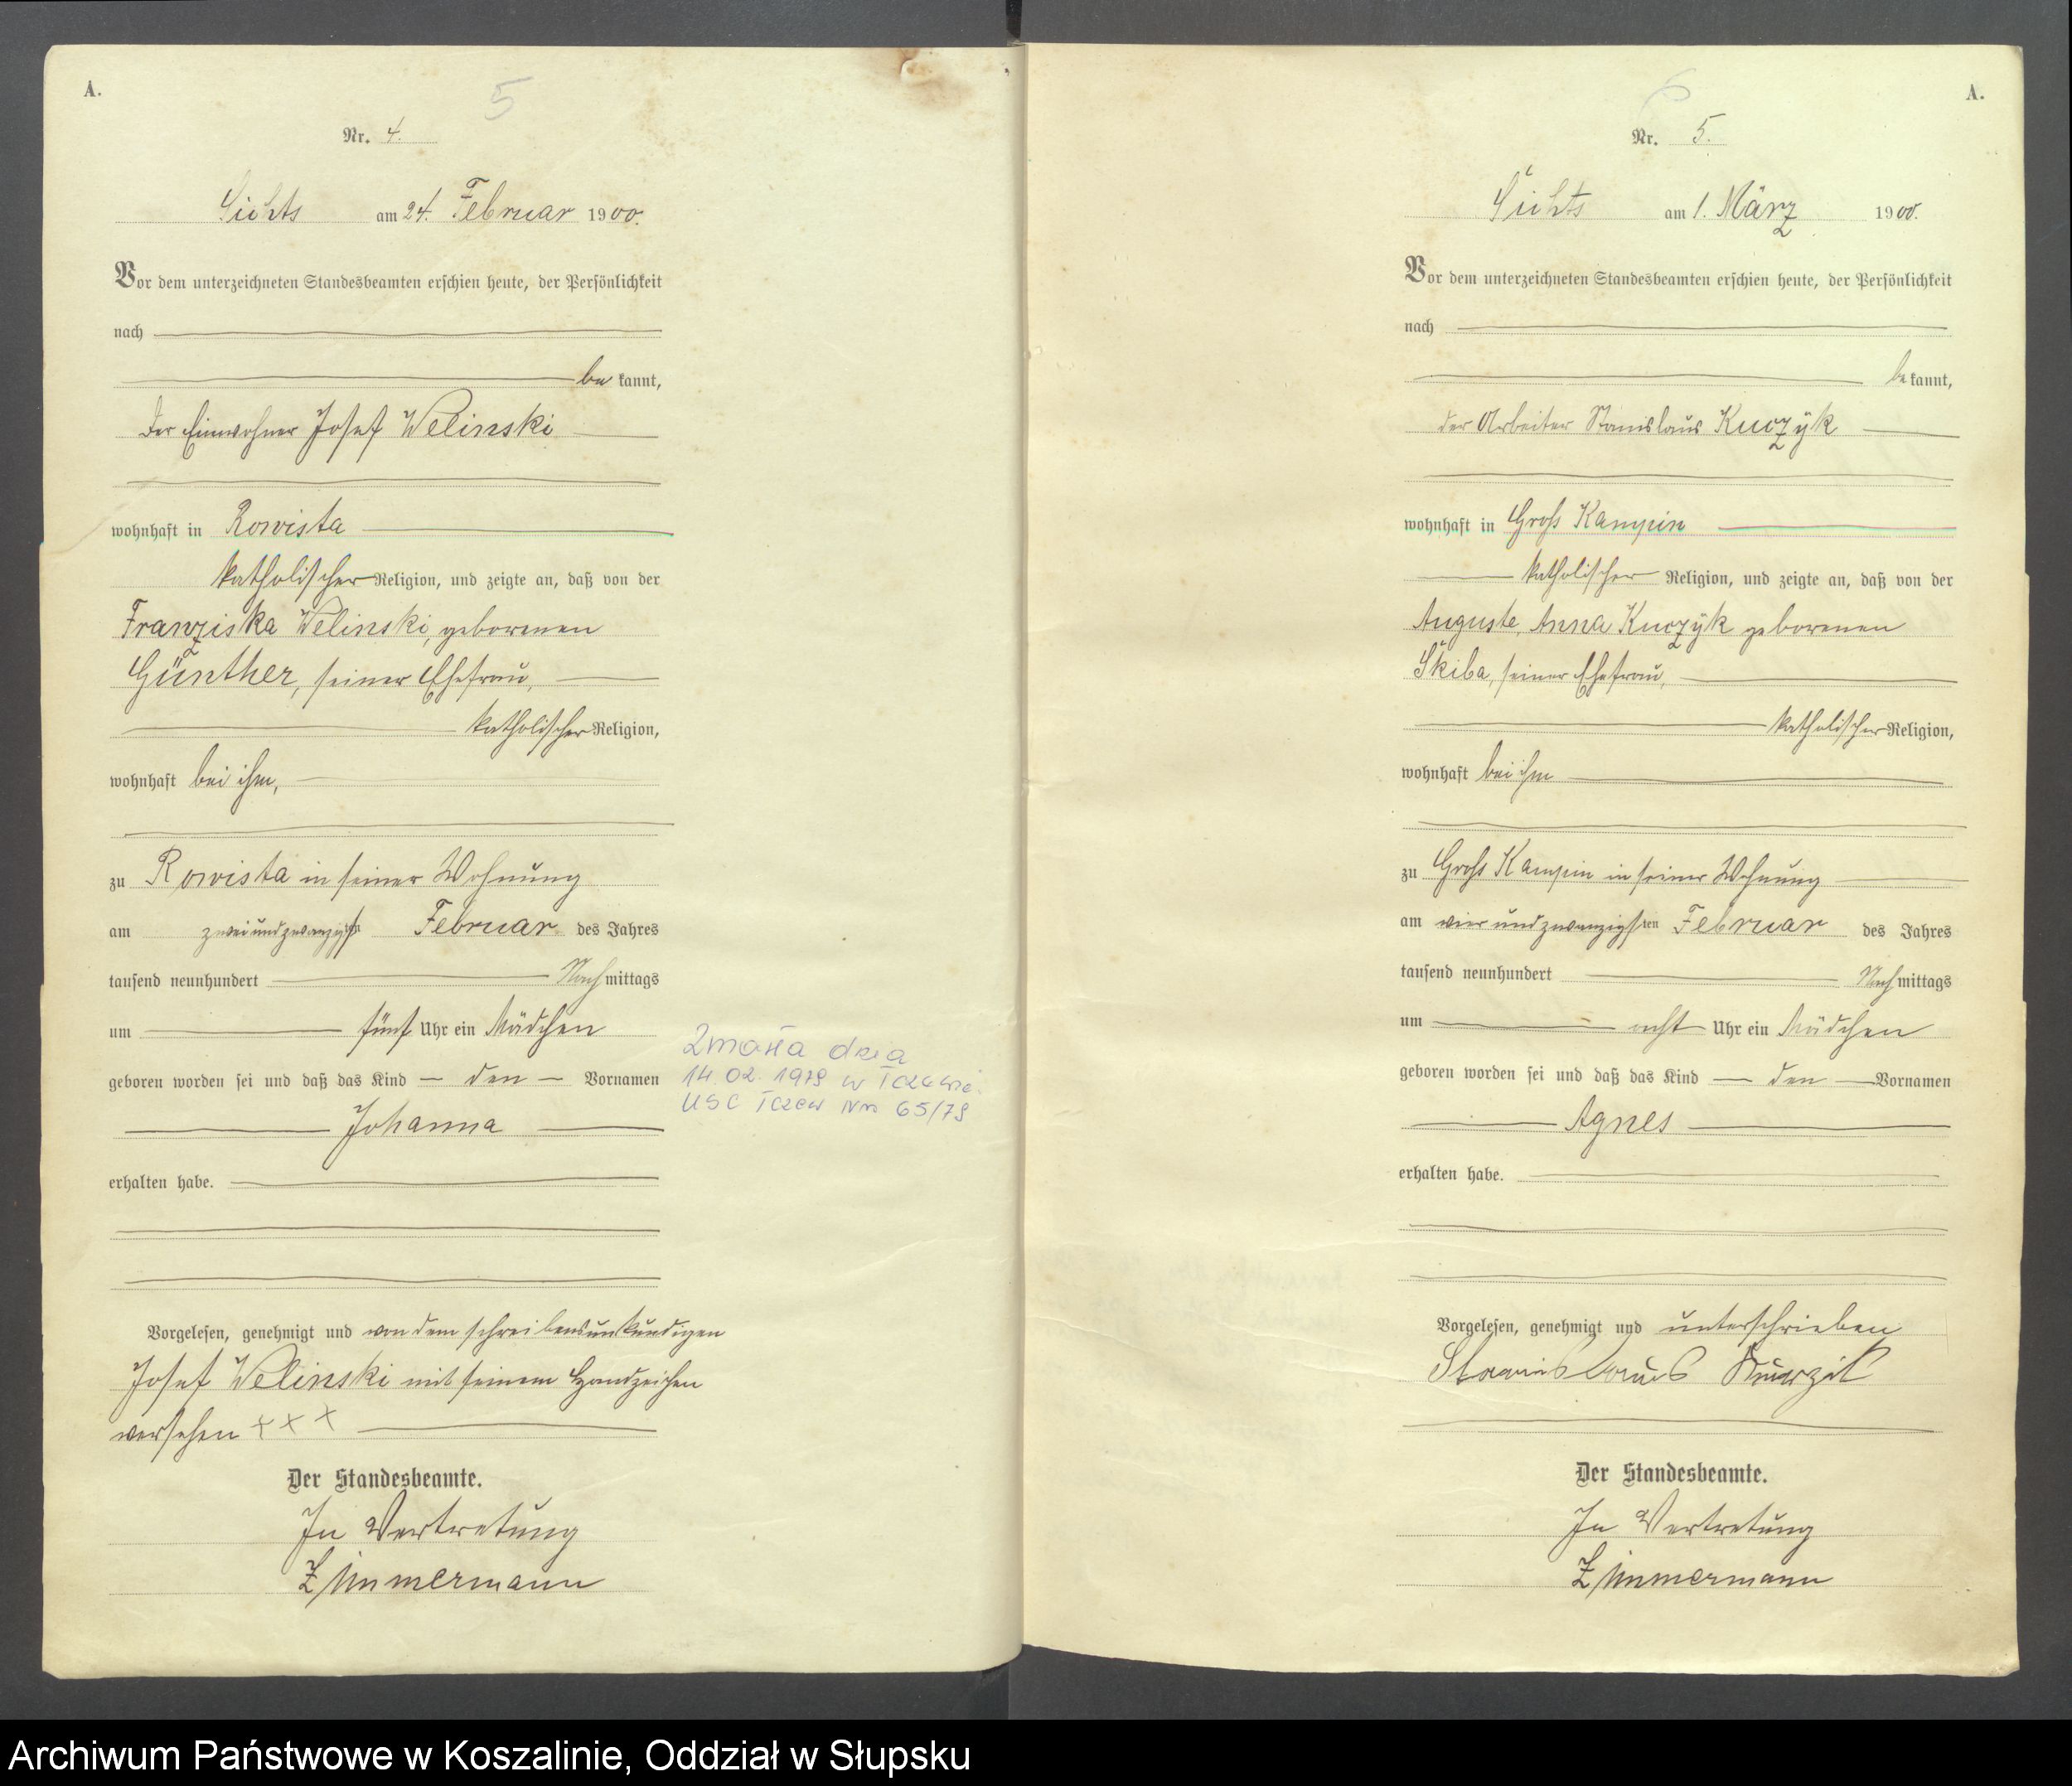 A.
5
Nr. 4.
Sichts am 24. Februar 1900.
Vor dem unterzeichneten Standesbeamten erschien heute, der Persönlichkeit
nach
be kannt,
der Einwohner Josef Welinski
wohnhaft in Rowista
katholischer Religion, und zeigte an, daß von der
Franziska Welinski, geborenen
Günther, seiner Ehefrau,
katholischer Religion,
wohnhaft bei ihm,
zu Rowista in seiner Wohnung
am zweiundzwanzigsten Februar des Jahres
tausend neunhundert Nachmittags
um fünf Uhr ein Mädchen
geboren worden sei und daß das Kind den Vornamen
Johanna
erhalten habe.
Zmarła dnia
14.02.1979 w Tczewie
USC Tczew Nr 65/79
Vorgelesen, genehmigt und von dem schreibensunkundigen
Josef Welinski mit seinem Handzeichen
versehen + + +
Der Standesbeamte.
In Vertretung
Zimmermann
6
A.
Nr. 5.
Sichts am 1. März 1900.
Vor dem unterzeichneten Standesbeamten erschien heute, der Persönlichkeit
nach
be kannt,
der Arbeiter Stanislaus Kuczyk
wohnhaft in Gross
katholischer Religion, und zeigte an, daß von der
Auguste, Anna Kuczyk geborenen
Skiba, seiner Ehefrau,
katholischer Religion,
wohnhaft bei ihm
zu Gross in seiner Wohnung
am vierundzwanzigsten Februar des Jahres
tausend neunhundert Nachmittags
um acht Uhr ein Mädchen
geboren worden sei und daß das Kind den Vornamen
Agnes
erhalten habe.
Vorgelesen, genehmigt und unterschrieben
Stanislaus
Der Standesbeamte.
In Vertretung
Zimmermann
Archiwum Państwowe w Koszalinie, Oddział w Słupsku